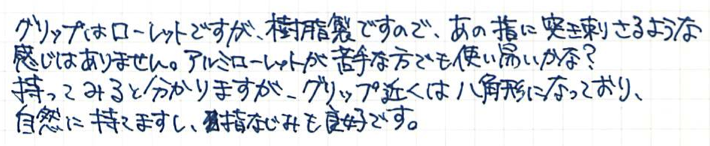 グリップはローレットですが、樹脂製ですので、あの指に突き刺さるような
感じはありません。アルミローレットが苦手な方でも使い易いかな？
持ってみると分かりますが、グリップ近くは八角形になっており、
自然に持てますし、指なじみも良好です。